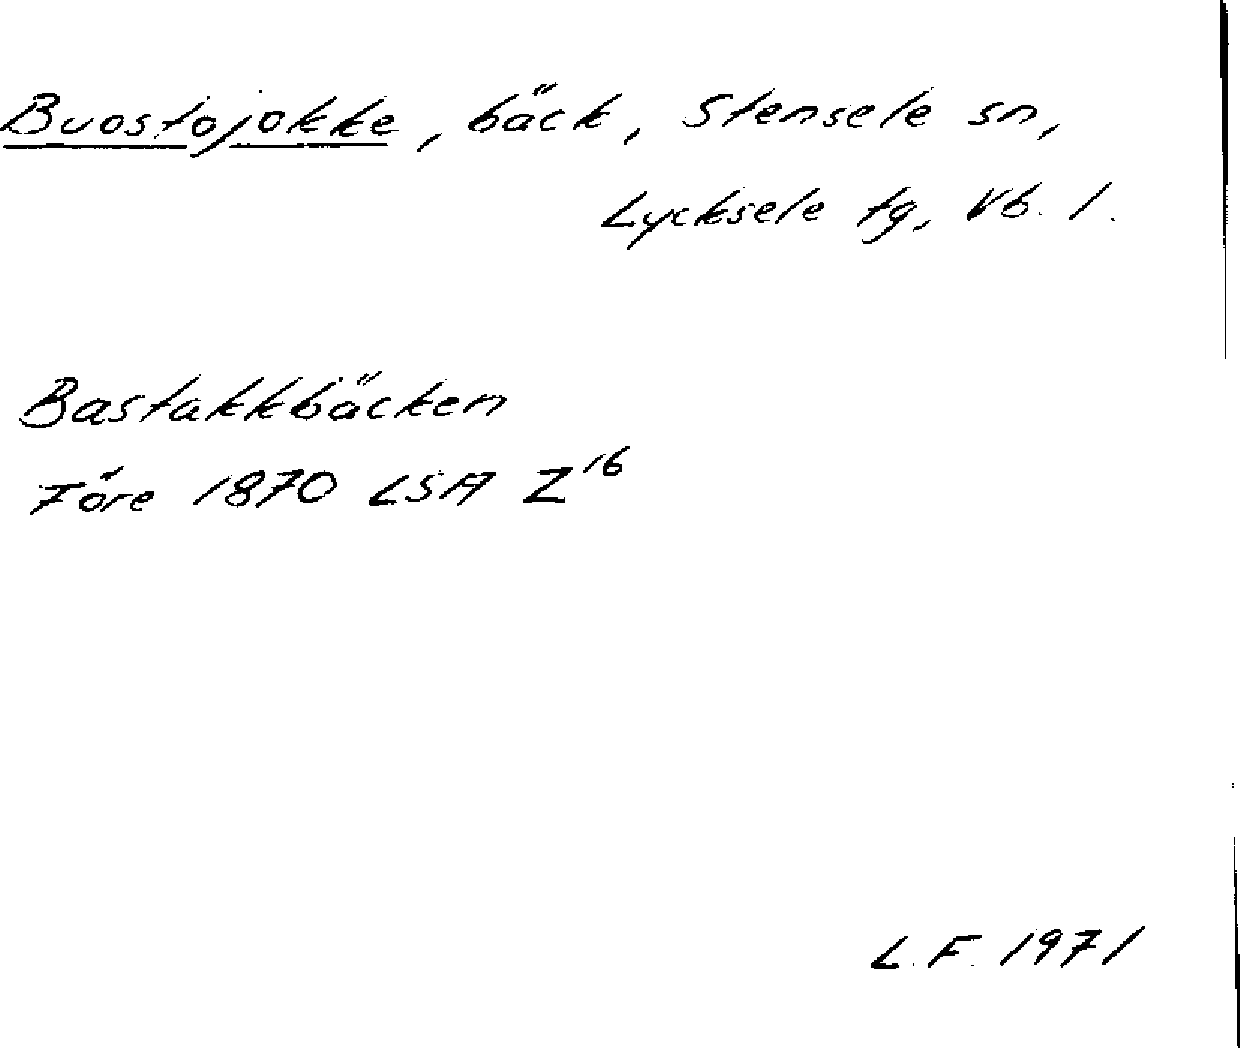 Buostojokke, bäck, Stensele sn,
Lycksele tg, Vb. l.
Bastakkbäcken
Före 1870 LSA Z16
L.F. 1971